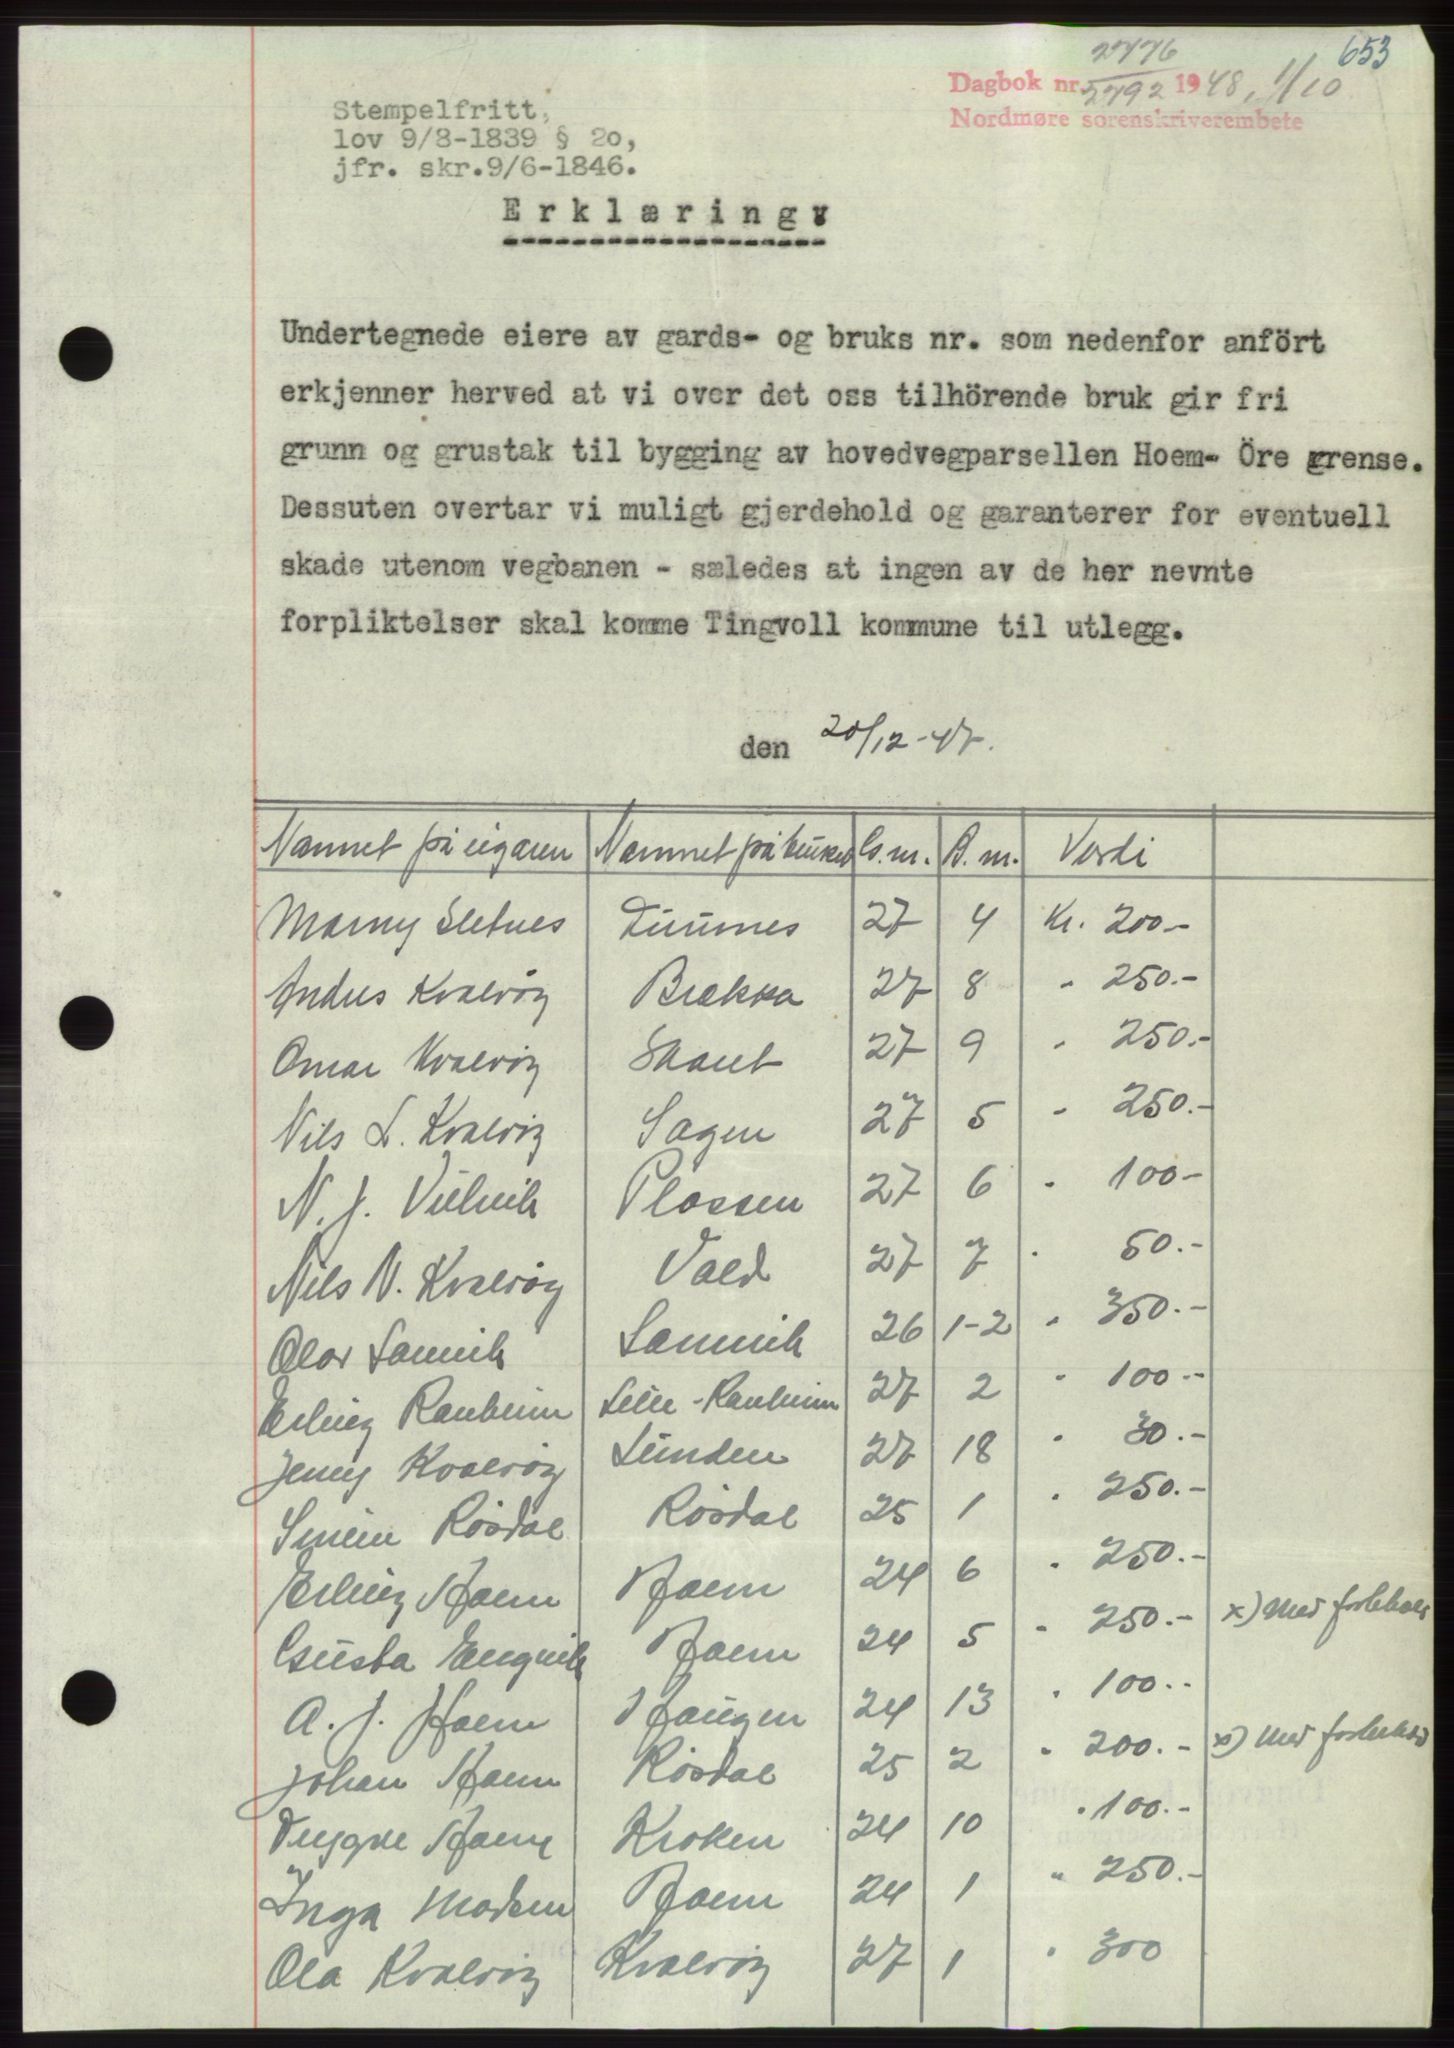 653
2776
Dagbok nr. 2792 1948, 1/10
Nordmøre sorenskriverembete
Stempelfritt,
lov 9/8-1839 § 20,
jfr. skr.9/6-1846.
Erklæring
Undertegnede eiere av gards- og bruks nr. som nedenfor anfört
erkjenner herved at vi over det oss tilhörende bruk gir fri
grunn og grustak til bygging av hovedvegparsellen Hoem- Öre grense.
Dessuten overtar vi muligt gjerdehold og garanterer for eventuell
skade utenom vegbanen - sæledes at ingen av de her nevnte
forpliktelser skal komme Tingvoll kommune til utlegg.
den 20/12-47.
Namnet på eigaren Namnet på bruket G.nr. B.nr. Verdi
Marny Sletnes 27 4 Kr. 200.-
Andres Kvalvåg Brekka 27 8 " 250.-
Omar Kvalvåg Skaret 27 9 " 250.-
Nils L. Kvalvåg Sagen 27 5 " 250.-
N. J. Plassen 27 6 " 100-
Nils N. Kvalvåg Vold 27 7 " 50.-
Olav Sanvik Sanvik 26 1-2 " 350.-
Erling Ranheim Lille-Ranheim 27 2 " 100.-
Jenny Kvalvåg Lunden 27 18 " 30.-
Røsdal Røsdal 25 1 " 250.-
Erling Hoem Hoem 24 6 " 250.-
Gusta Engvik Hoem 24 5 " 250.- x) Med forbehold
A. J. Hoem Haugen 24 13 " 100.-
Johan Hoem Røsdal 25 2 " 200.- x) Med forbehold
Trygve Hoem Kroken 24 10 " 100.-
Inga Hoem 24 1 " 250.-
Ola Kvalvåg Kvalvåg 27 1 " 300